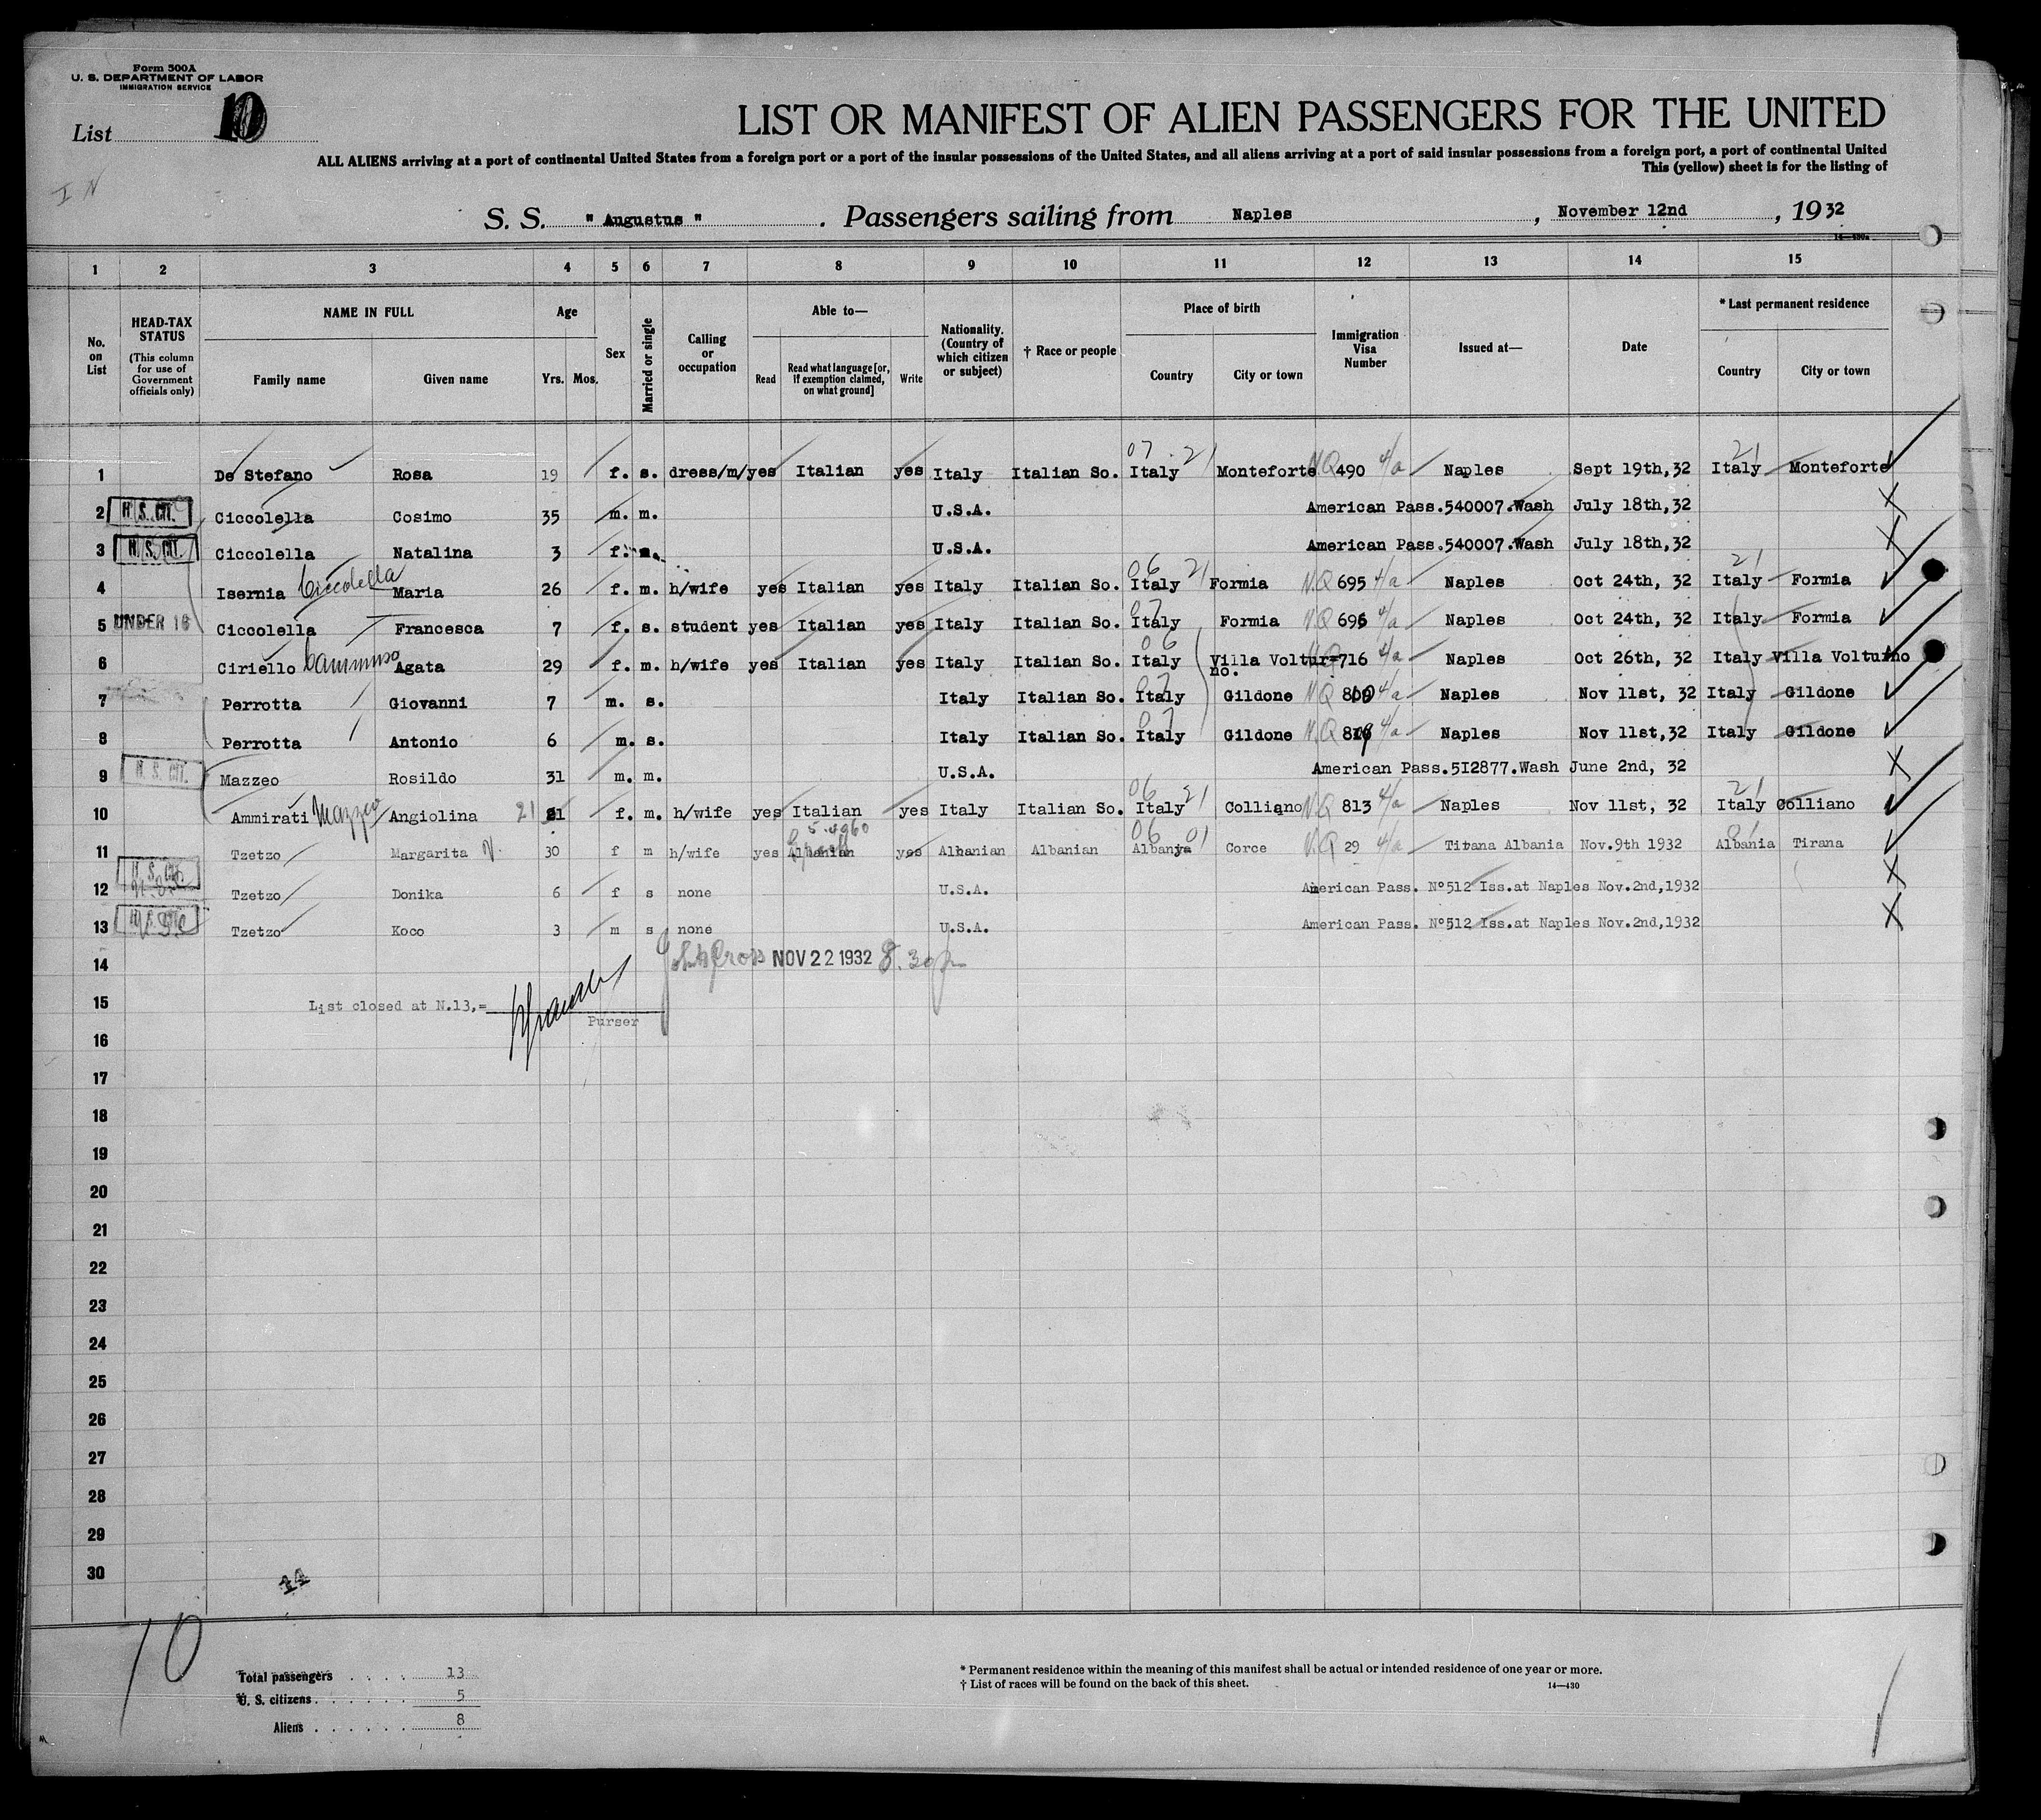 Form 500A
U. S. DEPARTMENT OF LABOR
IMMIGRATION SERVICE
List 10
LIST OR MANIFEST OF ALIEN PASSENGERS FOR THE UNITED
ALL ALIENS arriving at a port of continental United States from a foreign port or a port of the insular possessions of the United States, and all aliens arriving at a port of said insular possessions from a foreign port, a port of continental United
This (yellow) sheet is for the listing of
I N
S. S. " Augustus ". Passengers sailing from Naples, November 12nd, 1932
14—430a
1 2 3 4 5 6 7 8 9 10 11 12 13 14 15
No. on List
HEAD-TAX STATUS (This column for use of Government officials only)
NAME IN FULL Family name Given name
Age Yrs. Mos.
Sex
Married or single
Calling or occupation
Able to— Read Read what language [or, if exemption claimed, on what ground] Write
Nationality. (Country of which citizen or subject)
† Race or people
Place of birth Country City or town
Immigration Visa Number
Issued at—
Date
* Last permanent residence Country City or town
1 De Stefano Rosa 19 f. s. dress/m/ yes Italian yes Italy Italian So. 07 21 Italy Monteforte N.Q 490 4/a Naples Sept 19th,32 21 Italy Monteforte
2 U. S. CIT. Ciccolella Cosimo 35 m. m. U.S.A. American Pass.540007.Wash July 18th,32
3 U. S. CIT. Ciccolella Natalina 3 f. s. U.S.A. American Pass.540007.Wash July 18th,32
4 Isernia Ciccolella Maria 26 f. m. h/wife yes Italian yes Italy Italian So. 06 21 Italy Formia N.Q 695 4/a Naples Oct 24th, 32 21 Italy Formia
5 UNDER 16 Ciccolella Francesca 7 f. s. student yes Italian yes Italy Italian So. 07 Italy Formia N.Q 696 4/a Naples Oct 24th, 32 Italy Formia
6 Ciriello Cammuso Agata 29 f. m. h/wife yes Italian yes Italy Italian So. 06 Italy Villa Voltur=no. 716 4/a Naples Oct 26th, 32 Italy Villa Volturno
7 Perrotta Giovanni 7 m. s. Italy Italian So. 07 Italy Gildone N.Q 810 4/a Naples Nov 11st, 32 Italy Gildone
8 Perrotta Antonio 6 m. s. Italy Italian So. 07 Italy Gildone N.Q 4/a Naples Nov 11st,32 Italy Gildone
9 U. S. CIT. Mazzeo Rosildo 31 m. m. U.S.A. American Pass.5I2877.Wash June 2nd, 32
10 Ammirati Mazzeo Angiolina 21 f. m. h/wife yes Italian yes Italy Italian So. 06 21 Italy Colliano N.Q 813 4/a Naples Nov 11st, 32 21 Italy Colliano
11 Tzetzo Margarita V. 30 f m h/wife yes Albanian yes Albanian Albanian 06 01 Albanya Corce N.Q 29 4/a Tirana Albania Nov.9th 1932 Albania Tirana
12 U. S. CIT. Tzetzo Donika 6 f s none U.S.A. American Pass. Nº512 Iss.at Naples Nov.2nd,1932
13 Tzetzo Koco 3 m s none U.S.A. American Pass. Nº512 Iss.at Naples Nov.2nd,1932
14 NOV 22 1932 8.30 p
15 List closed at N.13,=
Purser
16
17
18
19
20
21
22
23
24
25
26
27
28
29
30
10
Total passengers . . . . 13
U. S. citizens . . . . . . 5
Aliens . . . . . . 8
* Permanent residence within the meaning of this manifest shall be actual or intended residence of one year or more.
† List of races will be found on the back of this sheet.
14—430